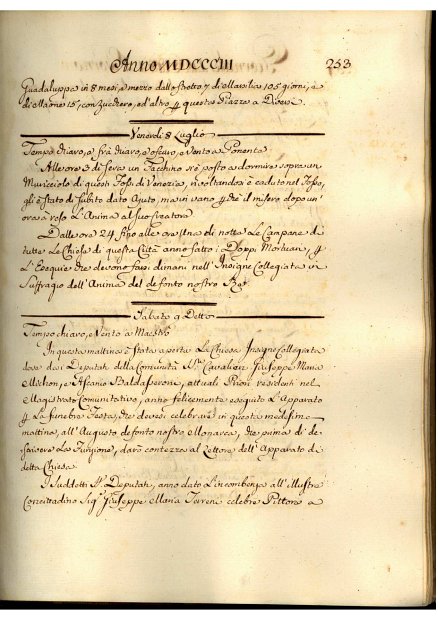 Anno MDCCCIII 253
Guadaluppa in 8 mesi, e mezzo dallo Stretto 7 di Marsilia 105 giorni, e
di Maone 15, con Zucchero, ed altro p questa Piazza a Diversi
Venerdì 8 Luglio
Tempo chiaro, a frà chiaro, e oscuro, e Vento a Ponente
Alle ore 3 di Sera un Facchino si è posto a dormire sopra un
Muricciolo di questi Fossi di Venezia, rivoltandosi è caduto nel Fosso,
gli è stato di subito dato Ajuto, ma in vano p chè il misero dopo un'
ora à reso L'Anima al suo Creatore
Dalle ore 24, fino alle ore Una di notte Le Campane di
tutte Le Chiese di questa Città anno sonato i Doppi Mortuari, p
L'Esequie che devono farsi dimani nell'Insigne Collegiata in
Suffragio dell'Anima del defonto nostro Rè.
Sabato 9 Detto
Tempo chiaro, e Vento a Maestro
In questa mattina è stata aperta La Chiesa Insigne Collegiata
dove dai Deputati della Comunità Sri. Cavalieri Giuseppe Maria
Michon, e Ascanio Baldasseroni, attuali Priori residenti nel
Magistrato Comunitativo, anno felicemente eseguito L'Apparato
p La funebre Festa, che devesi celebrare in questa medesima
mattina, all'Augusto defonto nostro Monarca, che prima di de=
scrivere La Funzione, darò contezza al Lettore dell'Apparato di
detta Chiesa.
I Suddetti Sri. Deputati, anno dato L'incombenza all'illustre
Concittadino Sigr. Giuseppe Maria Terreni celebre Pittore a